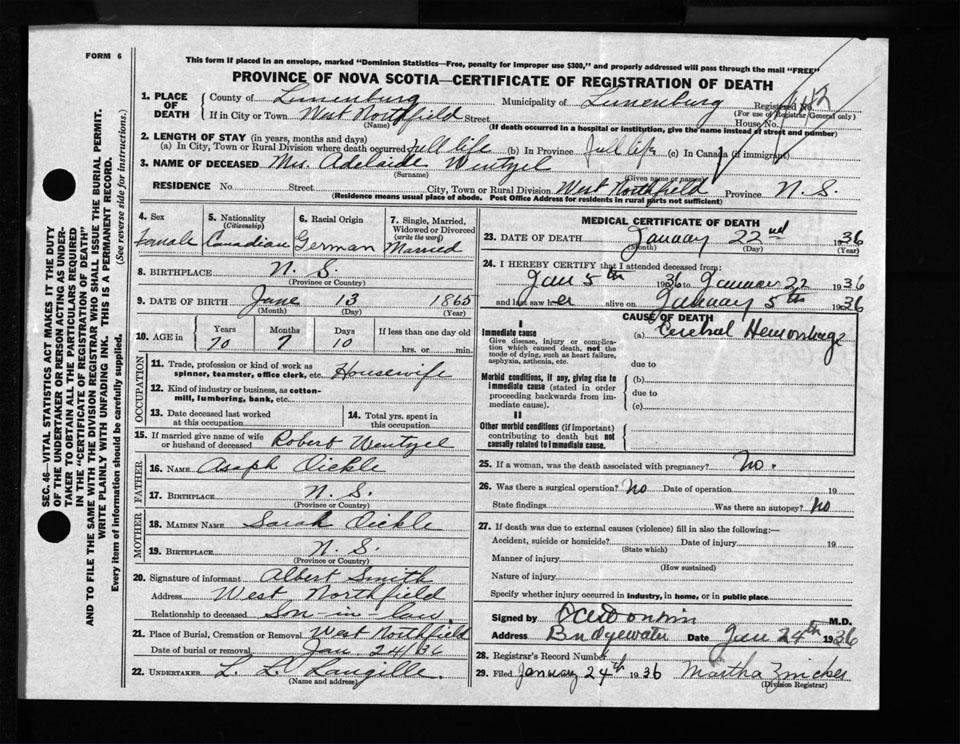 FORM 6
This form if placed in an envelope, marked "Dominion Statistics—Free, penalty for improper use $300," and properly addressed will pass through the mail "FREE"
PROVINCE OF NOVA SCOTIA—CERTIFICATE OF REGISTRATION OF DEATH
1. PLACE OF DEATH
County of Lunenburg Municipality of Lunenburg Registered No.
(For use of Registrar General only)
If in City or Town West Northfield Street House No.
(Name) (If death occurred in a hospital or institution, give the name instead of street and number)
2. LENGTH OF STAY (in years, months and days)
(a) In City, Town or Rural Division where death occurred full life (b) In Province full life (c) In Canada (if immigrant)
3. NAME OF DECEASED Mrs. Adelaide Wentzel
(Surname) (Given name or names)
RESIDENCE No. Street City, Town or Rural Division West Northfield Province N. S.
(Residence means usual place of abode. Post Office Address for residents in rural parts not sufficient)
4. Sex
Female
5. Nationality
(Citizenship)
Canadian
6. Racial Origin
German
7. Single, Married, Widowed or Divorced
(write the word)
Married
8. BIRTHPLACE N. S.
(Province or Country)
9. DATE OF BIRTH June 13 1865
(Month) (Day) (Year)
10. AGE in
Years Months Days If less than one day old
70 7 10 hrs. or min.
OCCUPATION
11. Trade, profession or kind of work as spinner, teamster, office clerk, etc. Housewife
12. Kind of industry or business, as cotton-mill, lumbering, bank, etc.
13. Date deceased last worked at this occupation
14. Total yrs. spent in this occupation
15. If married give name of wife or husband of deceased Robert Wentzel
FATHER
16. NAME Asaph Oickle
17. BIRTHPLACE N. S.
(Province or Country)
MOTHER
18. MAIDEN NAME Sarah Oickle
19. BIRTHPLACE N. S.
(Province or Country)
20. Signature of informant Albert Smith
Address West Northfield
Relationship to deceased Son-in-law.
21. Place of Burial, Cremation or Removal West Northfield
Date of burial or removal Jan 24/36
22. UNDERTAKER L. L. Langille.
(Name and address)
MEDICAL CERTIFICATE OF DEATH
23. DATE OF DEATH January 22nd 1936
(Month) (Day) (Year)
24. I HEREBY CERTIFY that I attended deceased from:
Jan 5th 1936 to January 22 1936
and last saw her alive on January 5th 1936
CAUSE OF DEATH
I
Immediate cause
Give disease, injury or complication which caused death, not the mode of dying, such as heart failure, asphyxia, asthenia, etc.
(a) Cerebral Hemorrhage
due to
Morbid conditions, if any, giving rise to immediate cause (stated in order proceeding backwards from immediate cause).
(b)
due to
(c)
II
Other morbid conditions (if important) contributing to death but not causally related to immediate cause.
25. If a woman, was the death associated with pregnancy? No.
26. Was there a surgical operation? No Date of operation 19
State findings Was there an autopsy? No
27. If death was due to external causes (violence) fill in also the following:—
Accident, suicide or homicide? Date of injury 19
(State which)
Manner of injury
(How sustained)
Nature of injury
Specify whether injury occurred in industry, in home, or in public place
Signed by Donkin M.D.
Address Bridgewater Date Jan 24th 1936
28. Registrar's Record Number
29. Filed January 24th 1936 Martha Zwicker
(Division Registrar)
SEC. 46—VITAL STATISTICS ACT MAKES IT THE DUTY
OF THE UNDERTAKER OR PERSON ACTING AS UNDER-
TAKER TO OBTAIN ALL THE PARTICULARS REQUIRED
IN THE "CERTIFICATE OF REGISTRATION OF DEATH"
AND TO FILE THE SAME WITH THE DIVISION REGISTRAR WHO SHALL ISSUE THE BURIAL PERMIT.
WRITE PLAINLY WITH UNFADING INK. THIS IS A PERMANENT RECORD.
Every item of information should be carefully supplied. (See reverse side for instructions.)